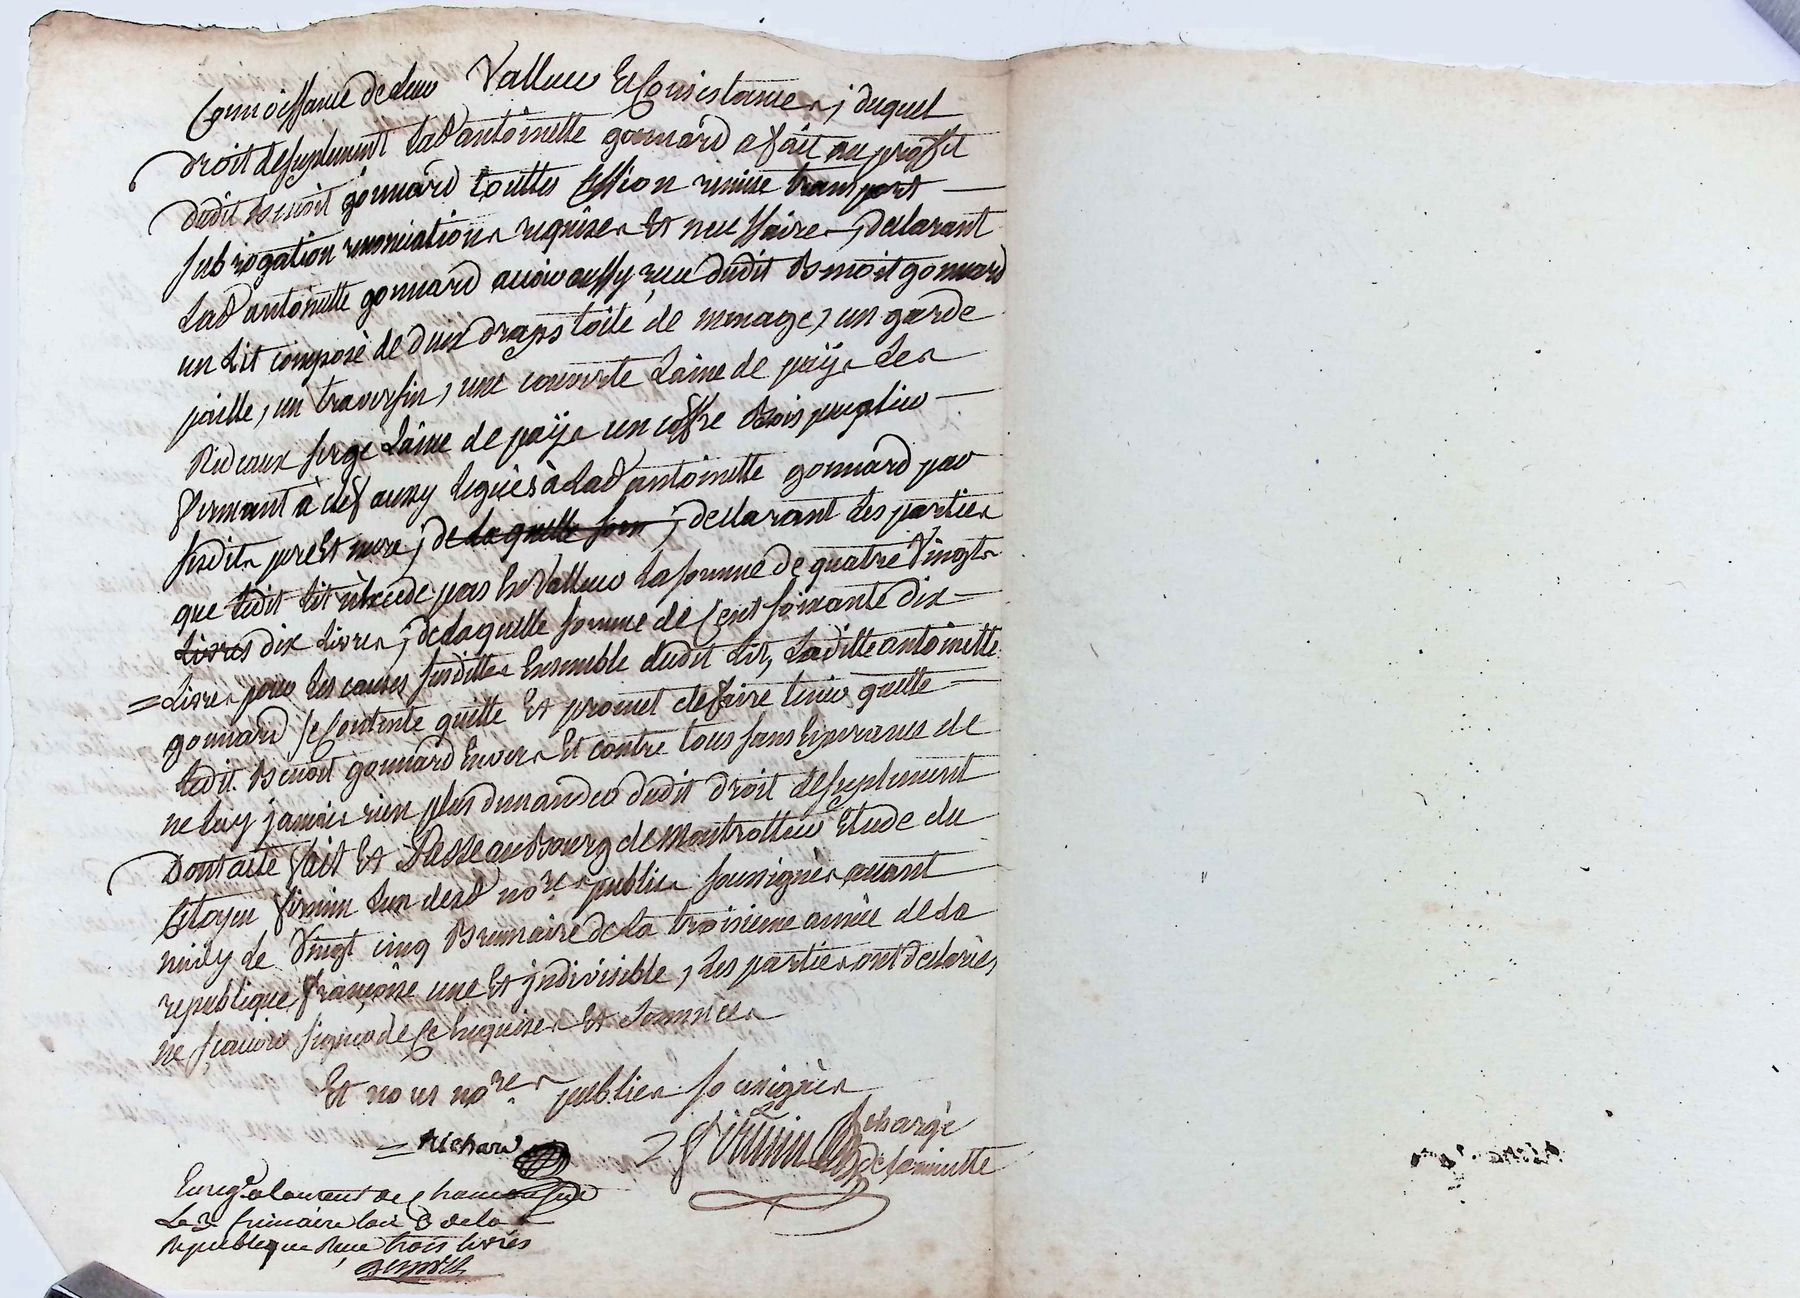 Connoissance de leur Valleur Et Consistance, ; duquel
droit de suplement lad antoinette gonnard a fait au proffit
dudit Benoit gonnard touttes Cession remise transport —
subrogation renonciations requises Et necessaires, declarant
Lad antoinette gonnard avoir aussy reçu dudit Benoit gonnard
un Lit composé de deux draps toile de menage, un garde
paille, un traversin, une couverte Laine de pays les
Rideaux serge Laine de pays un coffre Bois peuplier —
fermant à clef aussy legués à Lad antoinette gonnard par
sesdits pere Et mere ; de laquelle som ; declarant les parties
que ledit Lit n'Excede pas En Valleur La somme de quatre Vingts
Livres dix Livres, ; de laquelle somme de Cent soixante dix —
= Livres pour les causes susdittes Ensemble dudit Lit, Laditte antoinette
gonnard se Contente quitte Et promet de faire tenir quitte —
ledit Benoit gonnard Envers Et contre tous sans Esperances de
ne luy jamais rien plus demander dudit droit de suplement
Dont acte fait Et Passé au Bourg de Montrottier Etude du
Citoyen firmin L'un desd no.res publics soussignés avant
midy le Vingt cinq Brumaire de la troisieme année de la
republique françoise une Et jndivisible, Les parties ont declarés
ne sçavoir signer de Ce Enquises Et sommées
Et nous no.res publics sousignés
= Richard
firmin
chargé
de la minutte
Enreg.é a Laurent de Chamousset
Le 3 frimaire l'an 3 de la
Republique Reçu trois livres